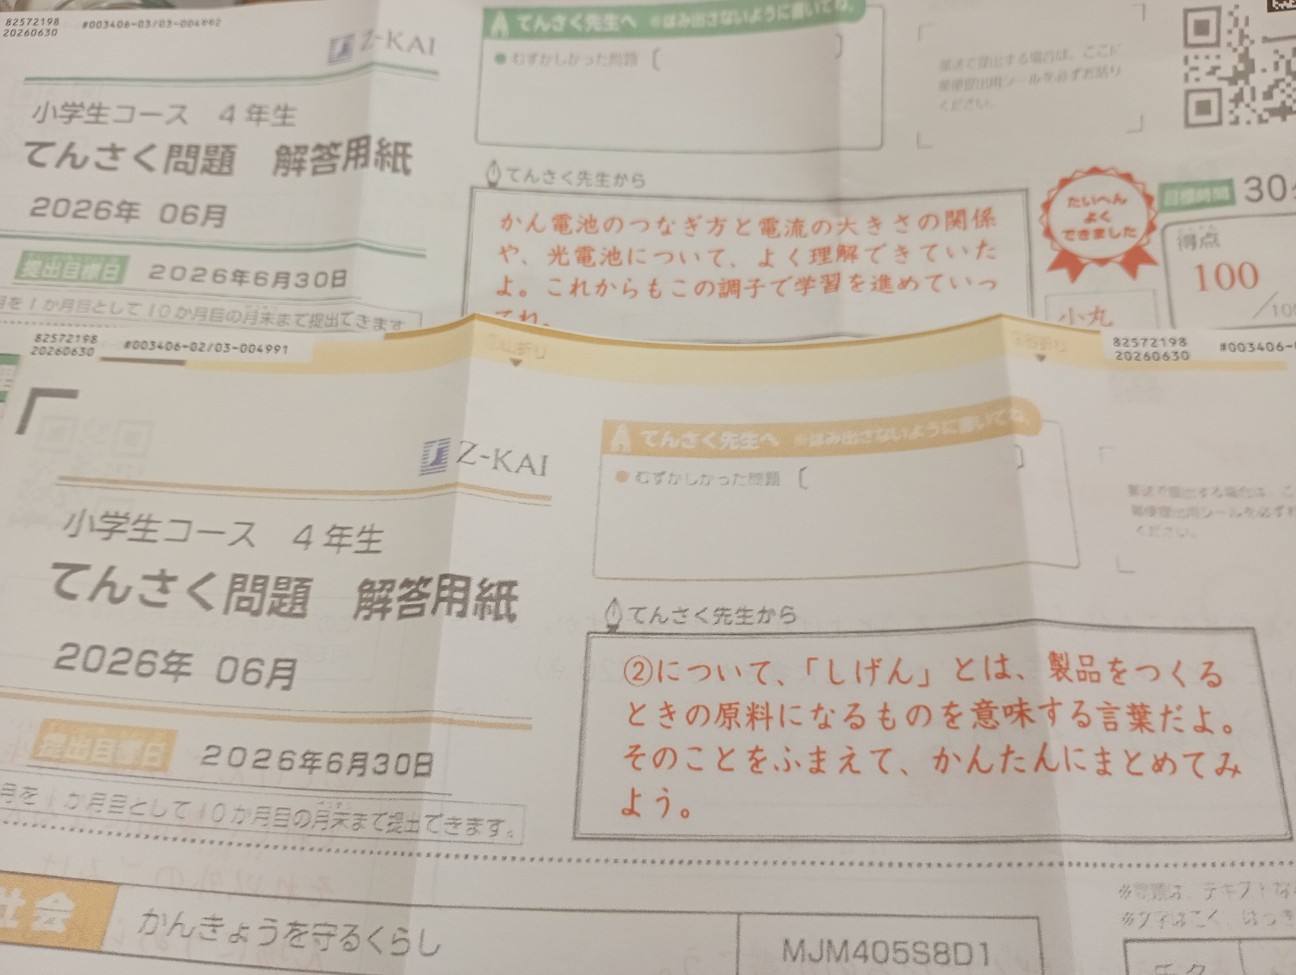 82572198 #003406-03/03-004992
20260630
Z-KAI
小学生コース 4年生
てんさく問題 解答用紙
2026年 06月
提出目標日 2026年6月30日
月を1か月目として10か月目の月末まで提出できます
てんさく先生へ ※はみ出さないように書いてね。
むずかしかった問題〔 〕
郵送で提出する場合は、ここに
郵便提出用シールを必ずお貼り
ください。
てんさく先生から
かん電池のつなぎ方と電流の大きさの関係
や、光電池について、よく理解できていた
よ。これからもこの調子で学習を進めていっ
てね。
たいへん
よく
できました
目標時間 30
得点
100
小丸
82572198 #003406-02/03-004991
20260630
82572198 #003406-
20260630
Z-KAI
小学生コース 4年生
てんさく問題 解答用紙
2026年 06月
提出目標日 2026年6月30日
月を1か月目として10か月目の月末まで提出できます。
てんさく先生へ ※はみ出さないように書いてね。
むずかしかった問題〔 〕
郵送で提出する場合は、こ
郵便提出用シールを必ずお
ください。
てんさく先生から
②について、「しげん」とは、製品をつくる
ときの原料になるものを意味する言葉だよ。
そのことをふまえて、かんたんにまとめてみ
よう。
社会 かんきょうを守るくらし MJM405S8D1